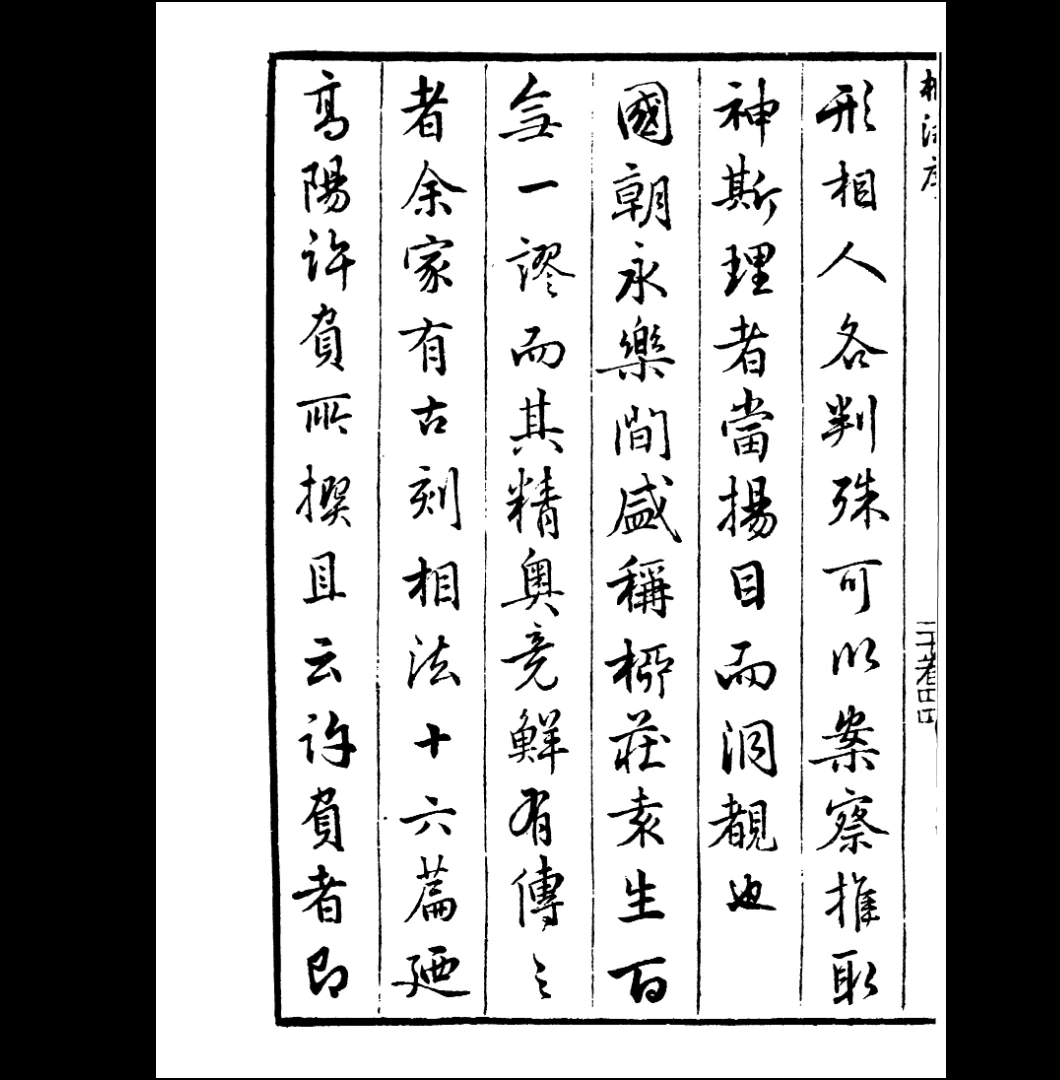 相法序
形相人各判殊可以案察推取
神斯理者當揚目而洞覩也
國朝永樂間盛稱柳莊袁生百
無一謬而其精奧竟鮮有傳之
者余家有古刻相法十六篇廼
高陽許負所撰且云許負者即